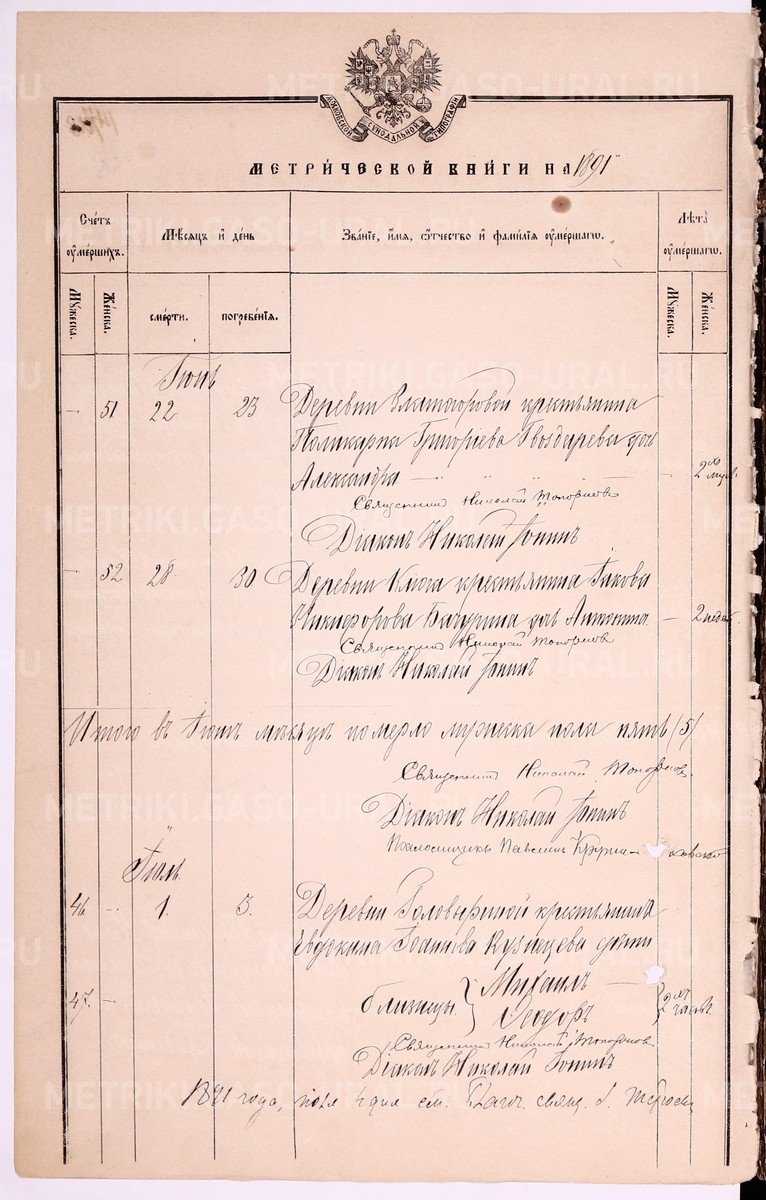 МОСКОВСКОЙ СѴНОДАЛЬНОЙ ТИПОГРАФІИ
МЕТРИ́ЧЕСКОЙ КНИ́ГИ НА 1891 г.
Сче́тъ ᲂумершихъ.
Мѣсяцъ и де́нь
Зва́нїе, и́мѧ, ѻ҆́тчество и фами́лїѧ ᲂуме́ршагѡ.
Лѣта̀ ᲂуме́ршагѡ.
Мꙋ́жеска.
Же́нска.
сме́рти.
погребе́нїѧ.
Мꙋ́жеска.
Же́нска.
Іюнь
— 51 22 23 Деревни Златогоровой крестьянина
Поликарпа Григоріева Гвоздарева дочь
Александра — 2хъ мѣс.
Священникъ Николай Топорковъ
Діаконъ Николай Іонинъ
— 52 28 30 Деревни Ключа крестьянина Іакова
Никифорова Бачурина дочь Антонина — 2 недѣл.
Священникъ Николай Топорковъ
Діаконъ Николай Іонинъ
Итого въ Іюнѣ мѣсяцѣ померло мужеска пола пять (5)
Священникъ Николай Топорковъ
Діаконъ Николай Іонинъ
Псаломщикъ
Іюль
46 " 1. 3. Деревни Головыриной крестьянина
Евдокима Іоаннова Кузнецова дѣти
47. — близнецы Михаилъ — 2хъ часов.
Ѳеодоръ
Священникъ Николай Топорковъ
Діаконъ Николай Іонинъ
1891 года, іюля 4 дня см. Благ. свящ.
METRIKI.GASO-URAL.RU